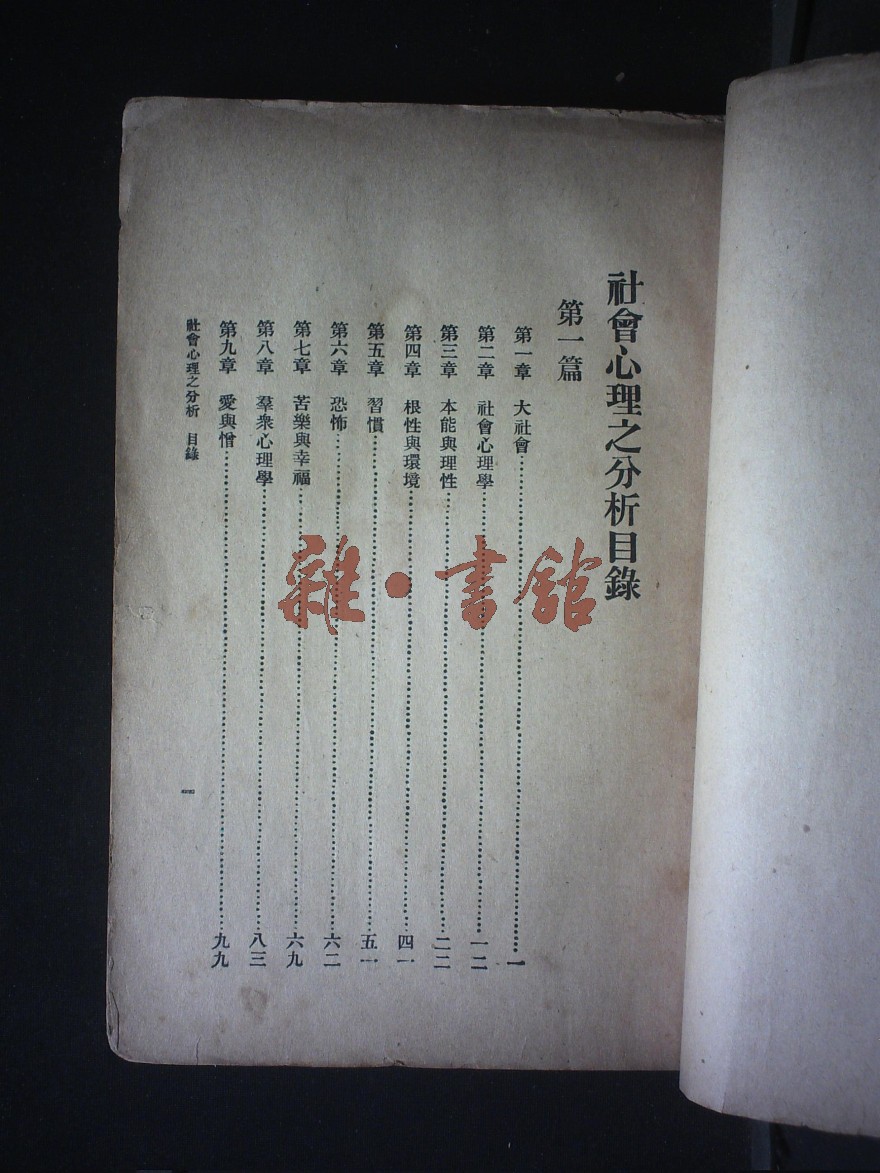 社會心理之分析目錄
第一篇
第一章 大社會……一
第二章 社會心理學……一二
第三章 本能與理性……二二
第四章 根性與環境……四一
第五章 習慣……五一
第六章 恐怖……六二
第七章 苦樂與幸福……六九
第八章 羣衆心理學……八三
第九章 愛與憎……九九
社會心理之分析 目錄
一
雜·書館